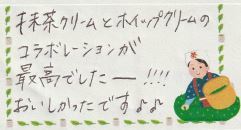 抹茶クリームとホイップクリームの
コラボレーションが
最高でしたー!!!!
おいしかったです♪♪